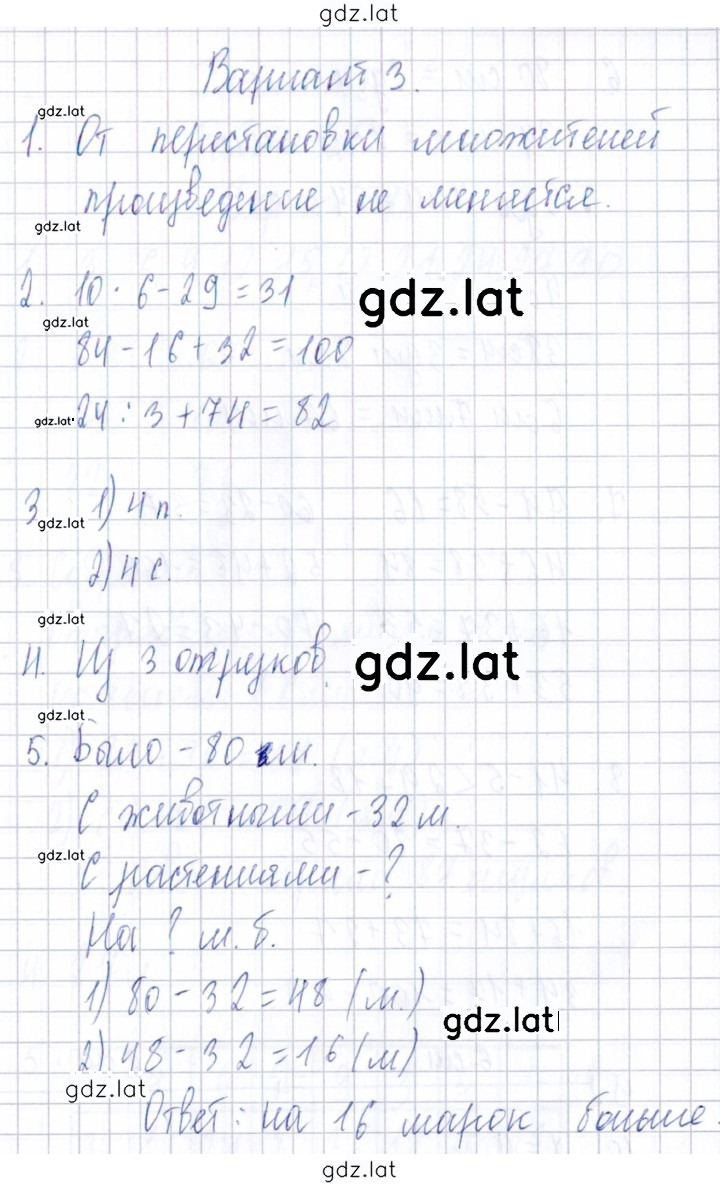 gdz.lat
Вариант 3.
gdz.lat
1. От перестановки множителей
произведение не меняется.
gdz.lat
2. 10 · 6 - 29 = 31
gdz.lat
gdz.lat
84 - 16 + 32 = 100
gdz.lat
24 : 3 + 74 = 82
3 1) 4 п.
gdz.lat
2) 4 с.
gdz.lat
4. Из 3 отрезков.
gdz.lat
gdz.lat
5. Было - 80 м.
С животными - 32 м.
gdz.lat
С растениями - ?
На ? м. б.
1) 80 - 32 = 48 (м.)
gdz.lat
2) 48 - 32 = 16 (м)
gdz.lat
Ответ: на 16 марок больше.
gdz.lat